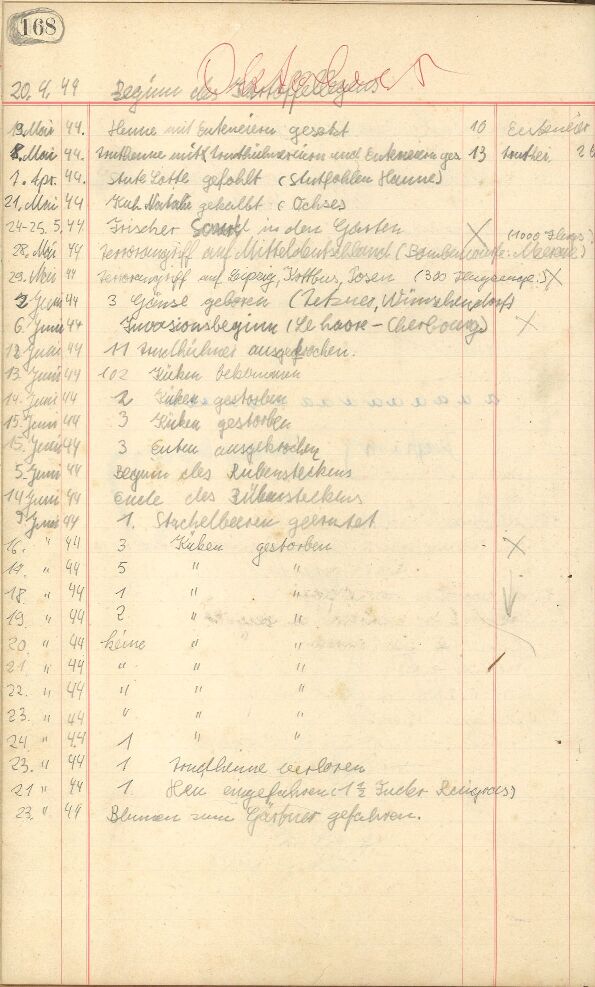 168
20. 4. 44 Beginn des Kartoffellegens
13. Mai 44. Henne mit Enteneiern gesetzt 10 Enteneier
8. Mai 44. Truthenne mit Truthühnereiern und Enteneiern ges 13 Truthei 26
1. Apr. 44. Stute Lotte gefohlt (Stutfohlen Hanne)
21. Mai 44. Kuh Natalie gekalbt (Ochse)
24-25. 5. 44 Frischer Sand in den Garten X (1000 Flugz.)
28. Mai 44 Terrorangriff auf Mitteldeutschland (Bombenwürfe: Meerane) X
29. Mai 44 Terrorangriff auf Leipzig, Kottbus, Posen (300 Flugzeuge) X
2. Juni 44 3 Gänse geboren (Tetzner, Wünschendorf)
6. Juni 44 Invasionsbeginn (Le havre - Cherbourg) X
12 Juni 44 11 Truthühner ausgekrochen.
13. Juni 44 102 Küken bekommen
14. Juni 44 2 Küken gestorben
15. Juni 44 3 Küken gestorben
15. Juni 44 3 Enten ausgekrochen
5. Juni 44 Beginn des Rübensteckens
14 Juni 44 Ende des Rübensteckens
9 Juni 44 1. Stachelbeeren geerntet
16. " 44 3 Küken gestorben X
17. " 44 5 " "
18 " 44 1 " "
19. " 44 2 " "
20. " 44 keine " "
21. " 44 " " "
22. " 44 " " "
23. " 44 " " "
24 " 44 1 " "
23. " 44 1 Truthenne verloren
21 " 44 1. Heu eingefahren (1 ½ Fuder Reingras)
23. " 44 Blumen zum Gärtner gefahren.